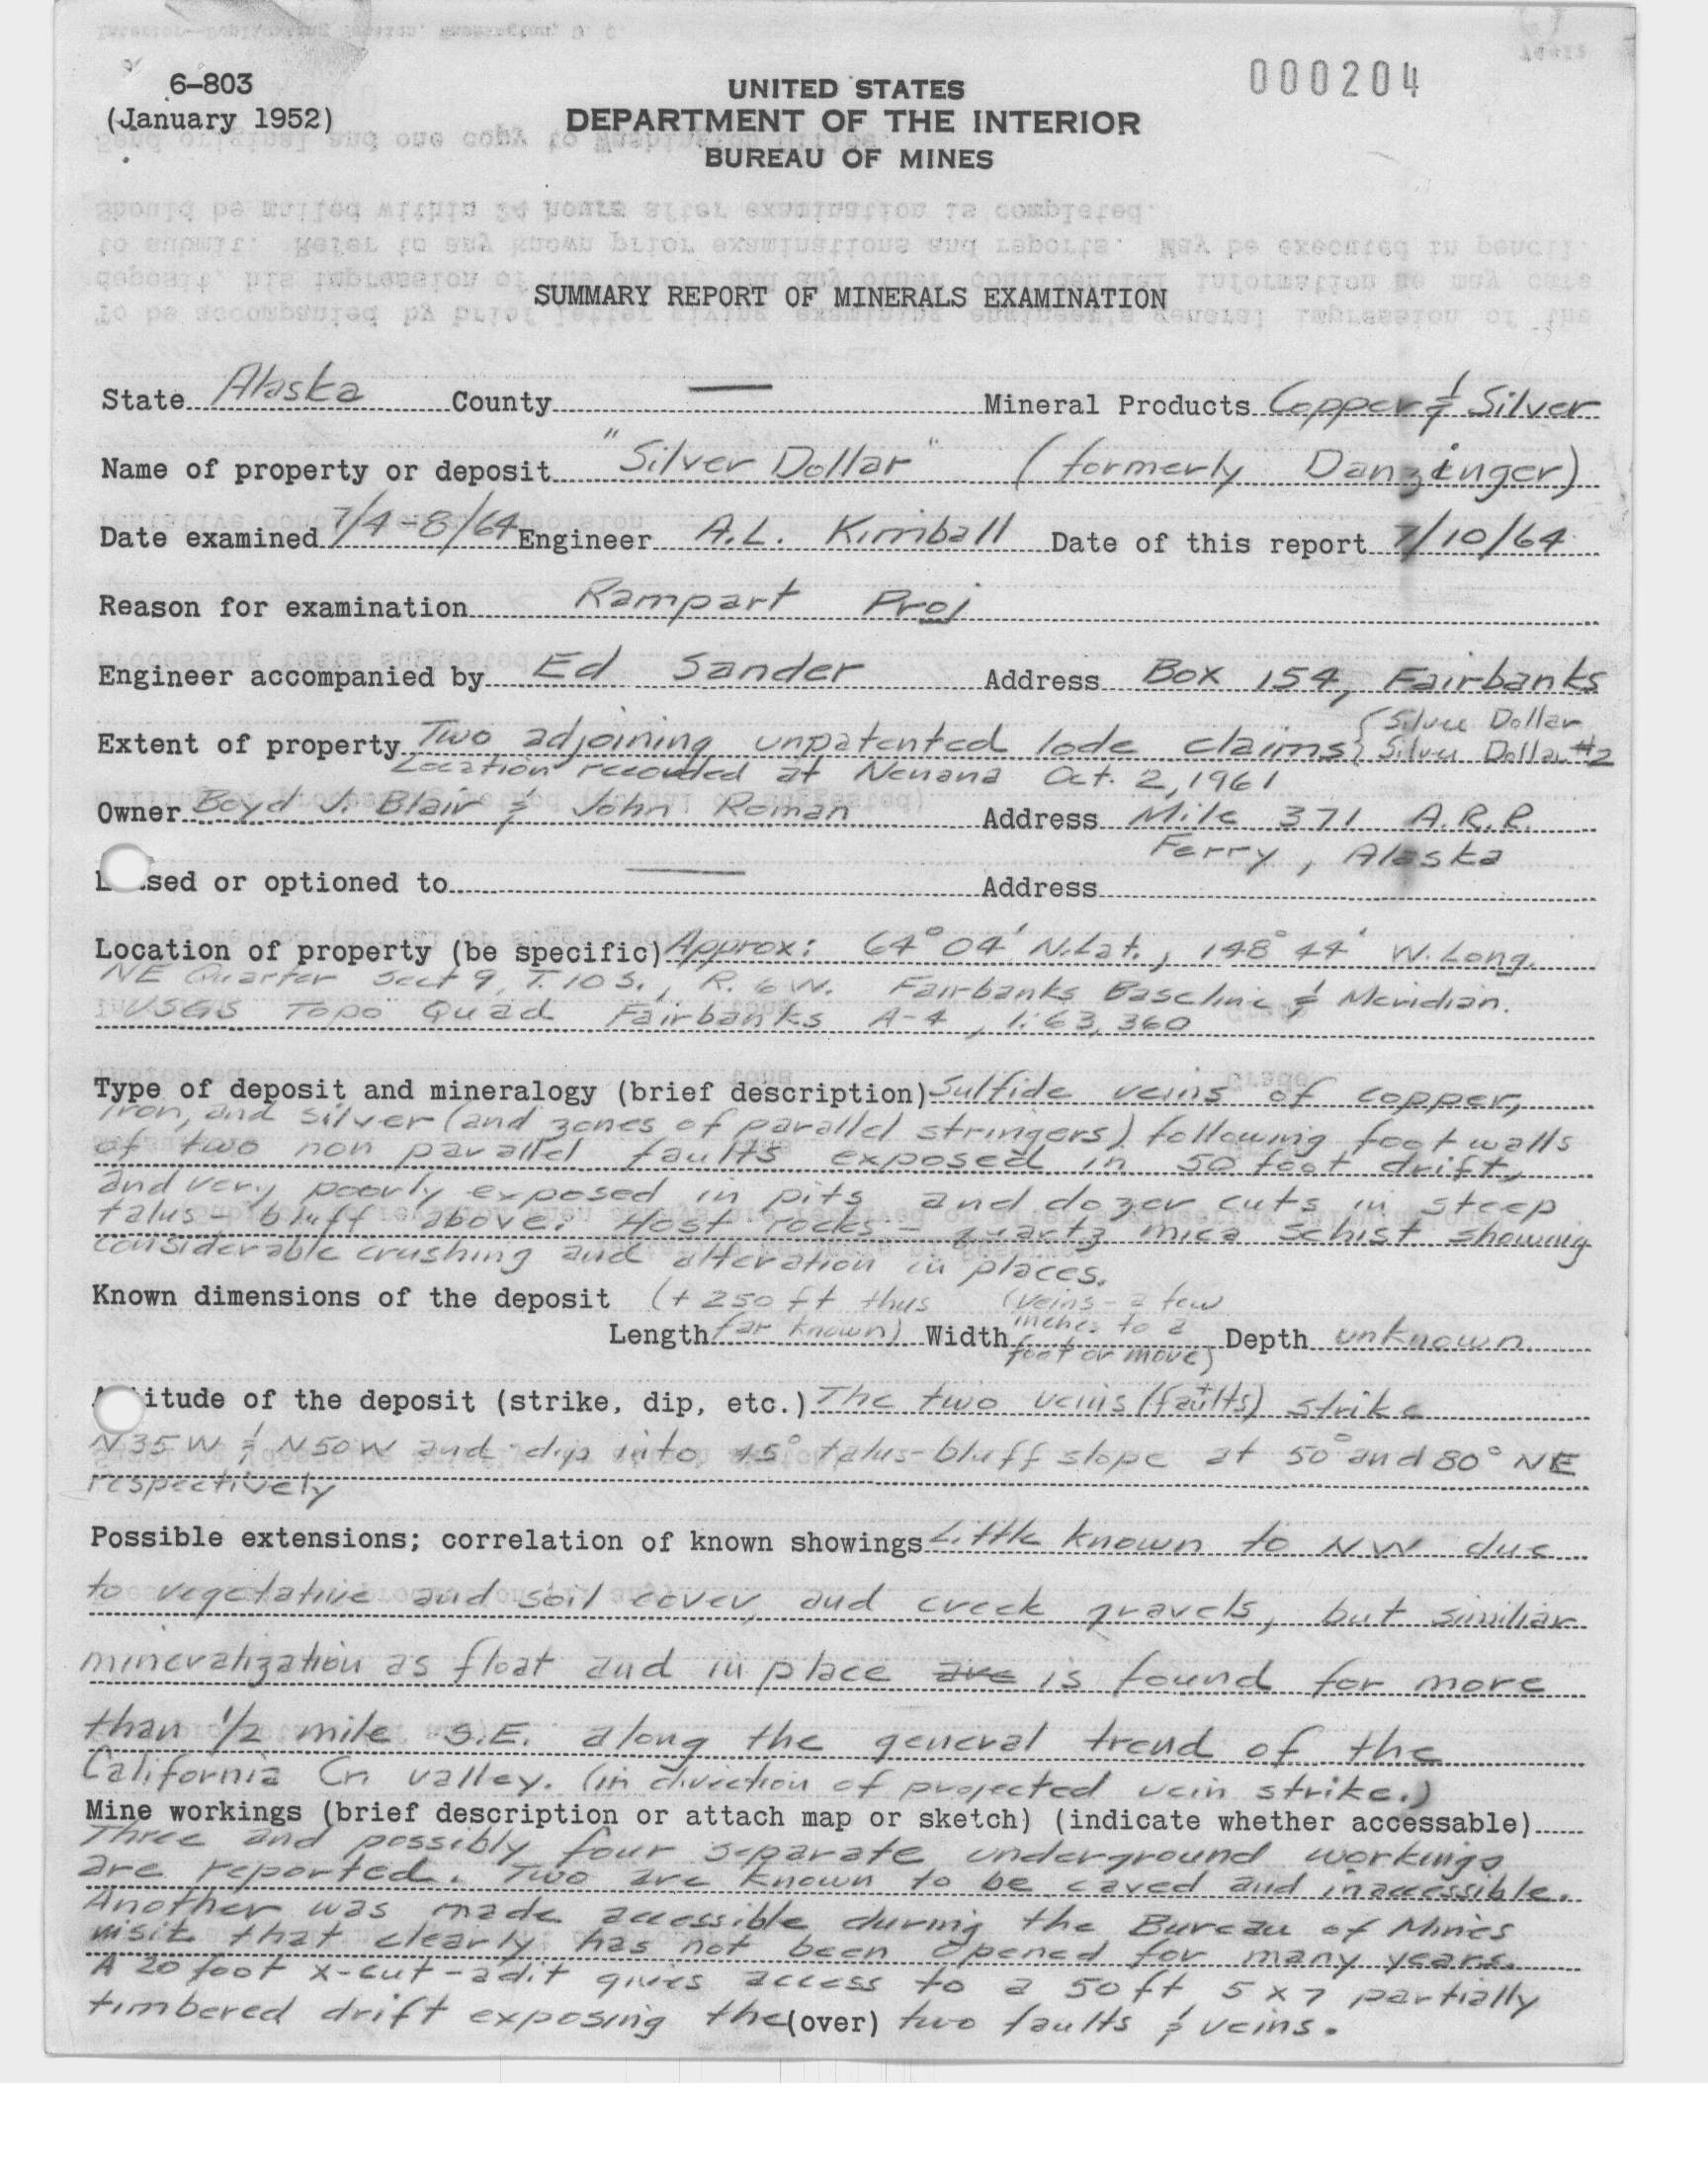 6-803
(January 1952)
000204
UNITED STATES
DEPARTMENT OF THE INTERIOR
BUREAU OF MINES
SUMMARY REPORT OF MINERALS EXAMINATION
State Alaska County — Mineral Products Copper & Silver
Name of property or deposit "Silver Dollar" (formerly Danzinger)
Date examined 7/4-8/64 Engineer A.L. Kimball Date of this report 7/10/64
Reason for examination Rampart Proj
Engineer accompanied by Ed Sander Address Box 154, Fairbanks
Extent of property Two adjoining unpatented lode claims { Silver Dollar
Silver Dollar #2
Location recorded at Nenana Oct. 2, 1961
Owner Boyd J. Blair & John Roman Address Mile 371 A.R.R.
Ferry, Alaska
L sed or optioned to — Address
Location of property (be specific) Approx: 64° 04' N.Lat., 148° 44' W. Long.
NE Quarter Sect 9, T. 10 S., R. 6 W. Fairbanks Baseline & Meridian.
USGS Topo Quad Fairbanks A-4, 1:63,360
Type of deposit and mineralogy (brief description) Sulfide veins of copper,
iron, and silver (and zones of parallel stringers) following foot walls
of two non parallel faults exposed in 50 foot drift,
and very poorly exposed in pits and dozer cuts in steep
talus-bluff above. Host rocks - quartz mica schist showing
considerable crushing and alteration in places.
Known dimensions of the deposit (+ 250 ft thus (veins - a few
Length far known) Width inches to a Depth unknown
foot or more)
A itude of the deposit (strike, dip, etc.) The two veins (+ faults) strike
N35W & N50W and dip into 45° talus-bluff slope at 50° and 80° NE
respectively
Possible extensions; correlation of known showings Little known to NW due
to vegetative and soil cover, and creek gravels, but similiar
mineralization as float and in place are is found for more
than 1/2 mile S.E. along the general trend of the
California Cr. valley. (in direction of projected vein strike.)
Mine workings (brief description or attach map or sketch) (indicate whether accessable)
Three and possibly four separate underground workings
are reported. Two are known to be caved and inaccessible.
Another was made accessible during the Bureau of Mines
visit that clearly has not been opened for many years.
A 20 foot x-cut-adit gives access to a 50 ft, 5 x 7 partially
timbered drift exposing the (over) two faults & veins.